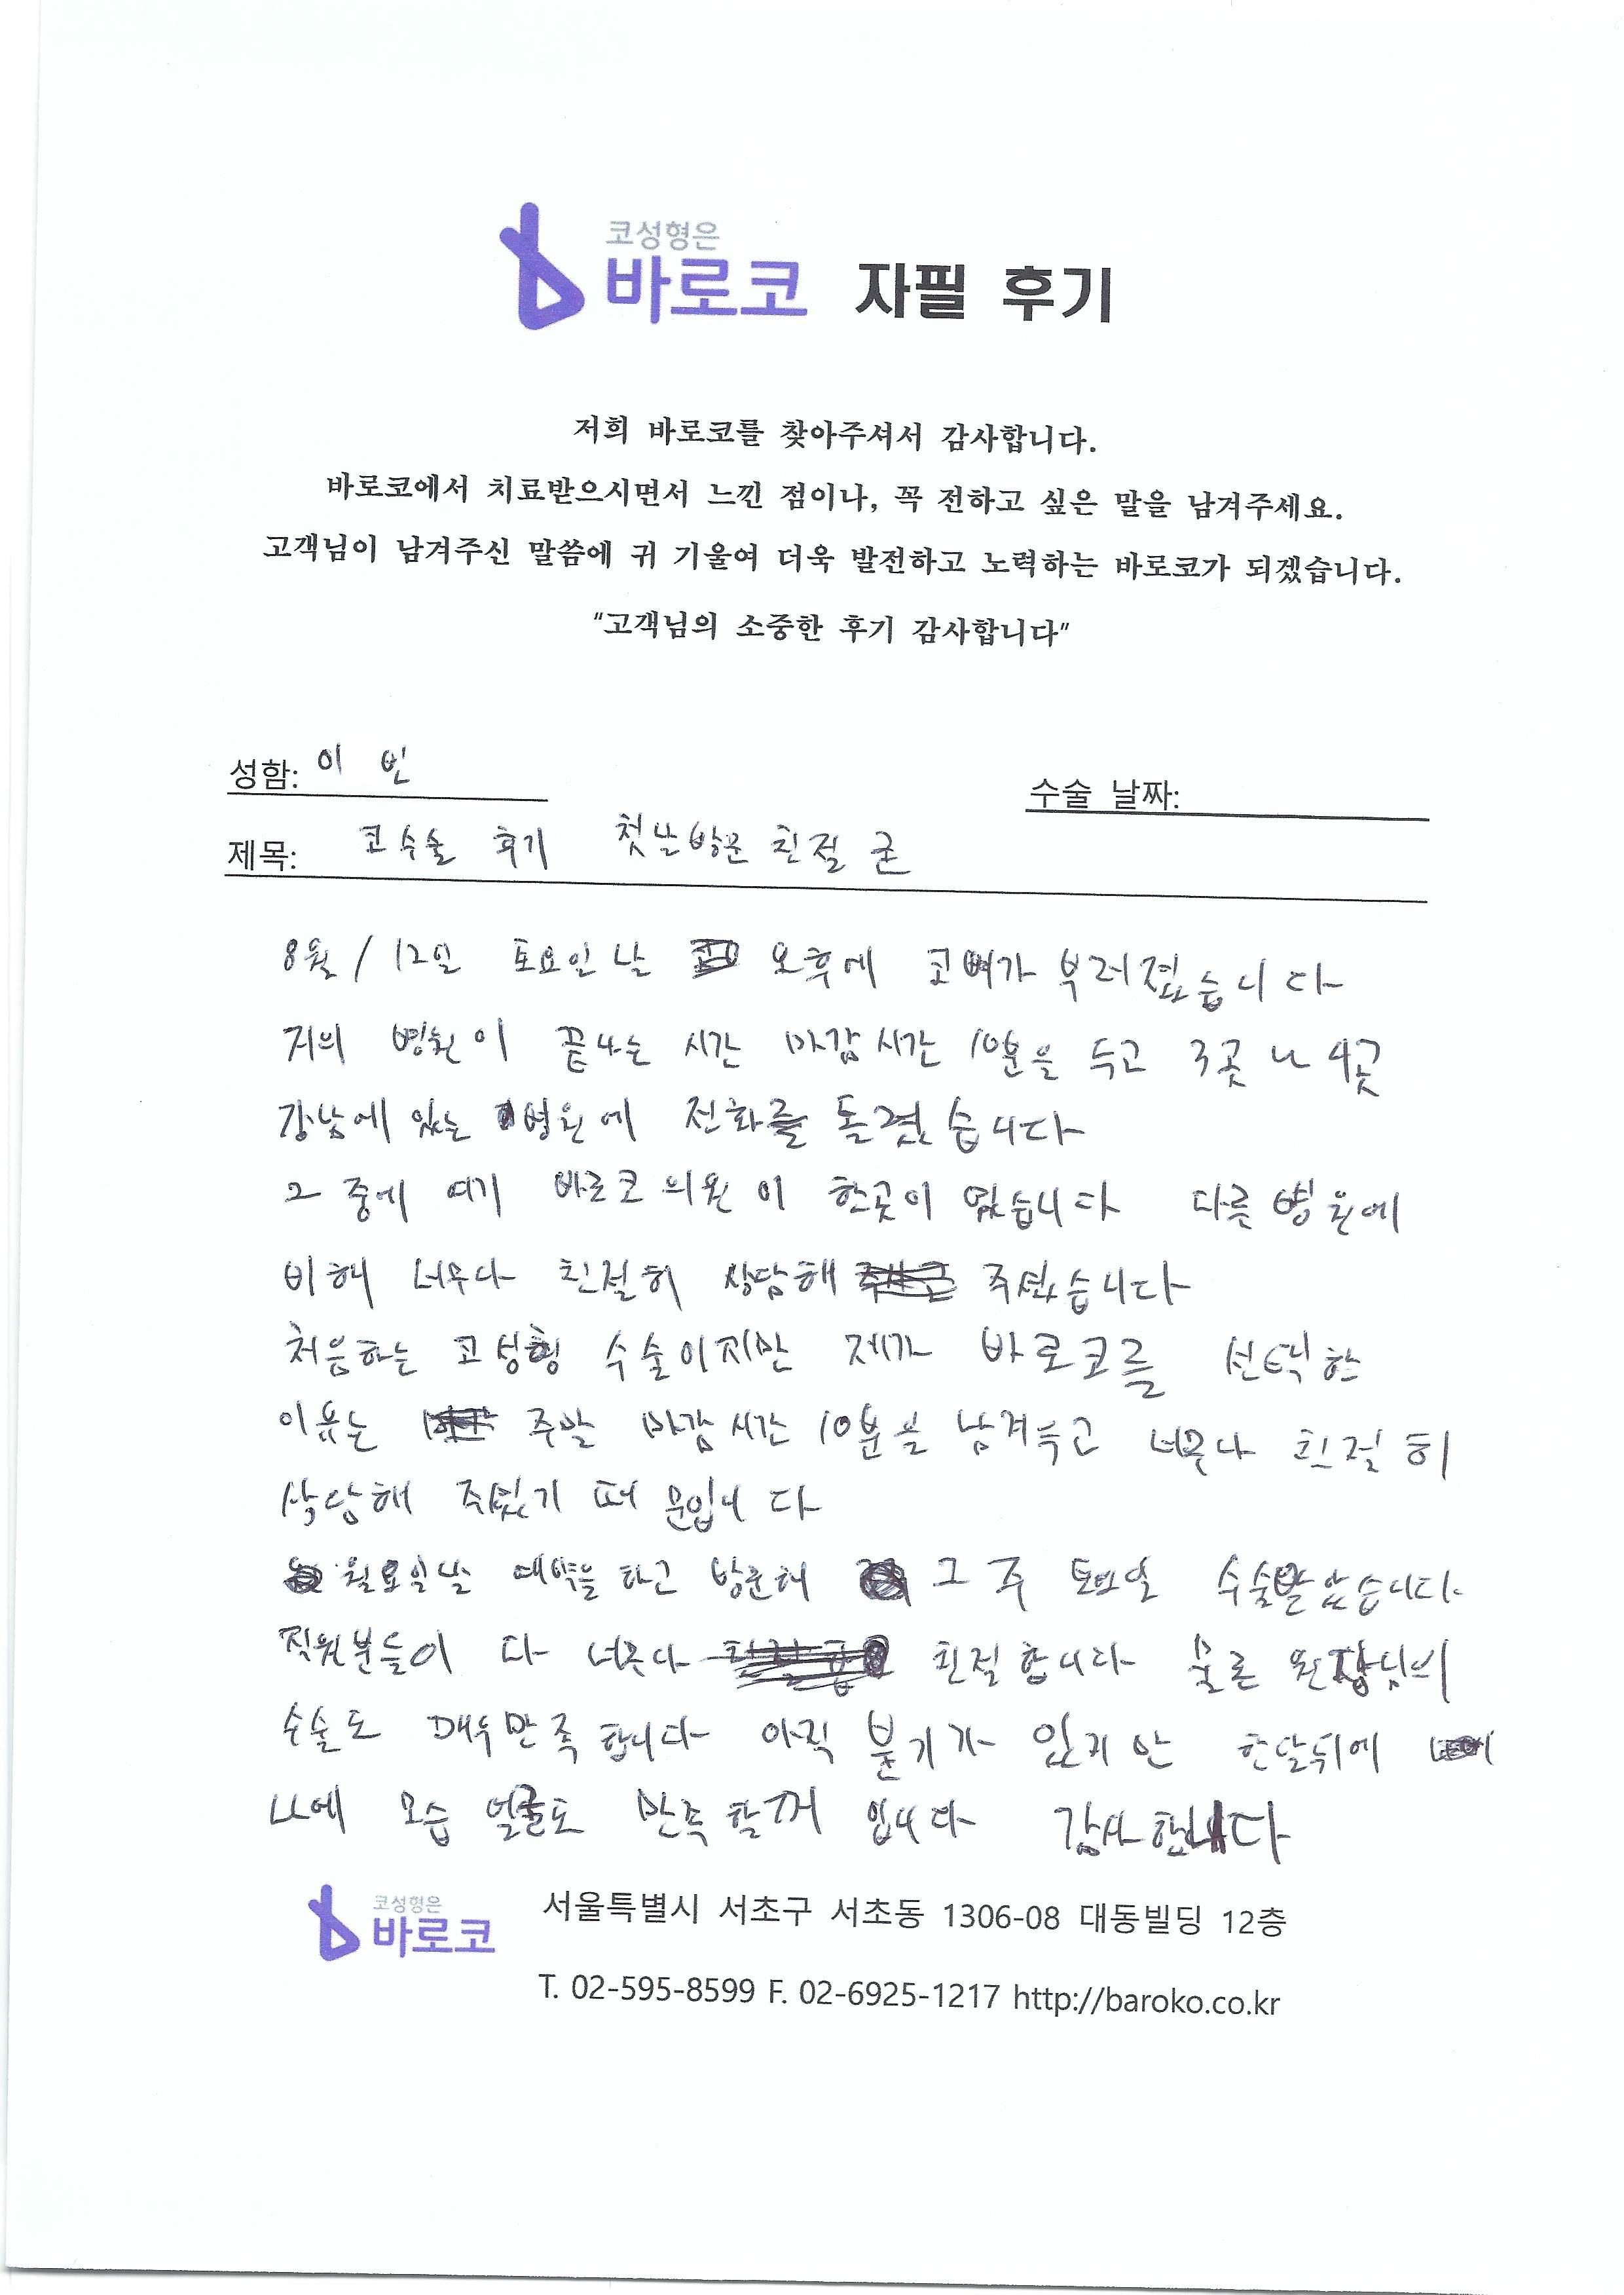 코성형은
바로코 자필 후기
저희 바로코를 찾아주셔서 감사합니다.
바로코에서 치료받으시면서 느낀 점이나, 꼭 전하고 싶은 말을 남겨주세요.
고객님이 남겨주신 말씀에 귀 기울여 더욱 발전하고 노력하는 바로코가 되겠습니다.
"고객님의 소중한 후기 감사합니다"
성함: 이 빈 수술 날짜:
제목: 코수술 후기 첫날방문 친절 굳
8월 / 12일 토요일날 오후에 코뼈가 부러졌습니다
저의 병원이 끝나는 시간 마감시간 10분을 두고 3곳 나 4곳
강남에 있는 병원에 전화를 돌렸습니다
그 중에 여기 바로코의원이 한곳이 였습니다 다른 병원에
비해 너무나 친절히 상담해 주셨습니다
처음하는 코성형 수술이지만 제가 바로코를 선택한
이유는 주말 마감시간 10분을 남겨두고 너무나 친절히
상담해 주셨기 때문입니다
월요일날 예약을 하고 방문해 그 주 토요일 수술받았습니다.
직원분들이 다 너무나 친절합니다 물론 원장님의
수술도 매우만족합니다 아직 붇기가 있지만 한달뒤에
나에 모습 얼굴도 만족할꺼 입니다 감사합니다
코성형은
바로코
서울특별시 서초구 서초동 1306-08 대동빌딩 12층
T. 02-595-8599 F. 02-6925-1217 http://baroko.co.kr